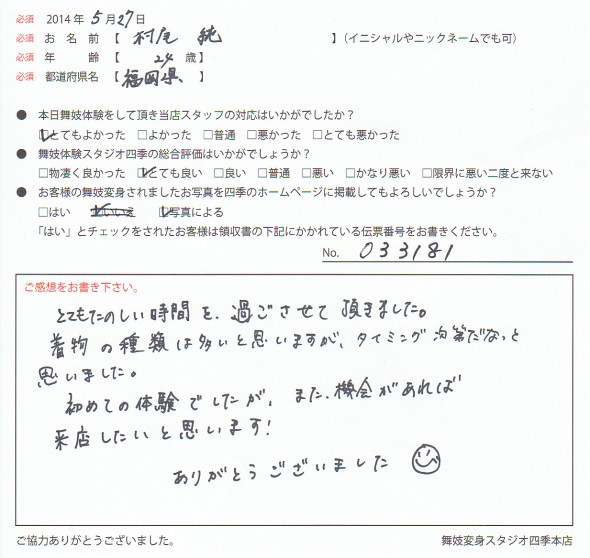 必須 2014年 5月27日
必須 お名前【 村尾 純 】(イニシャルやニックネームでも可)
必須 年齢【 24 歳】
必須 都道府県名【 福岡県、 】
● 本日舞妓体験をして頂き当店スタッフの対応はいかがでしたか?
☑とてもよかった □よかった □普通 □悪かった □とても悪かった
● 舞妓体験スタジオ四季の総合評価はいかがでしょうか?
□物凄く良かった ☑とても良い □良い □普通 □悪い □かなり悪い □限界に悪い二度と来ない
● お客様の舞妓変身されましたお写真を四季のホームページに掲載してもよろしいでしょうか?
□はい ☑いいえ ☑写真による
「はい」とチェックをされたお客様は領収書の下記にかかれている伝票番号をお書きください。
No. 033181
ご感想をお書き下さい。
とてもたのしい時間を、過ごさせて頂きました。
着物の種類は多いと思いますが、タイミング次第だなっと
思いました。
初めての体験でしたが、また、機会があれば
来店したいと思います!
ありがとうございました
ご協力ありがとうございました。 舞妓変身スタジオ四季本店